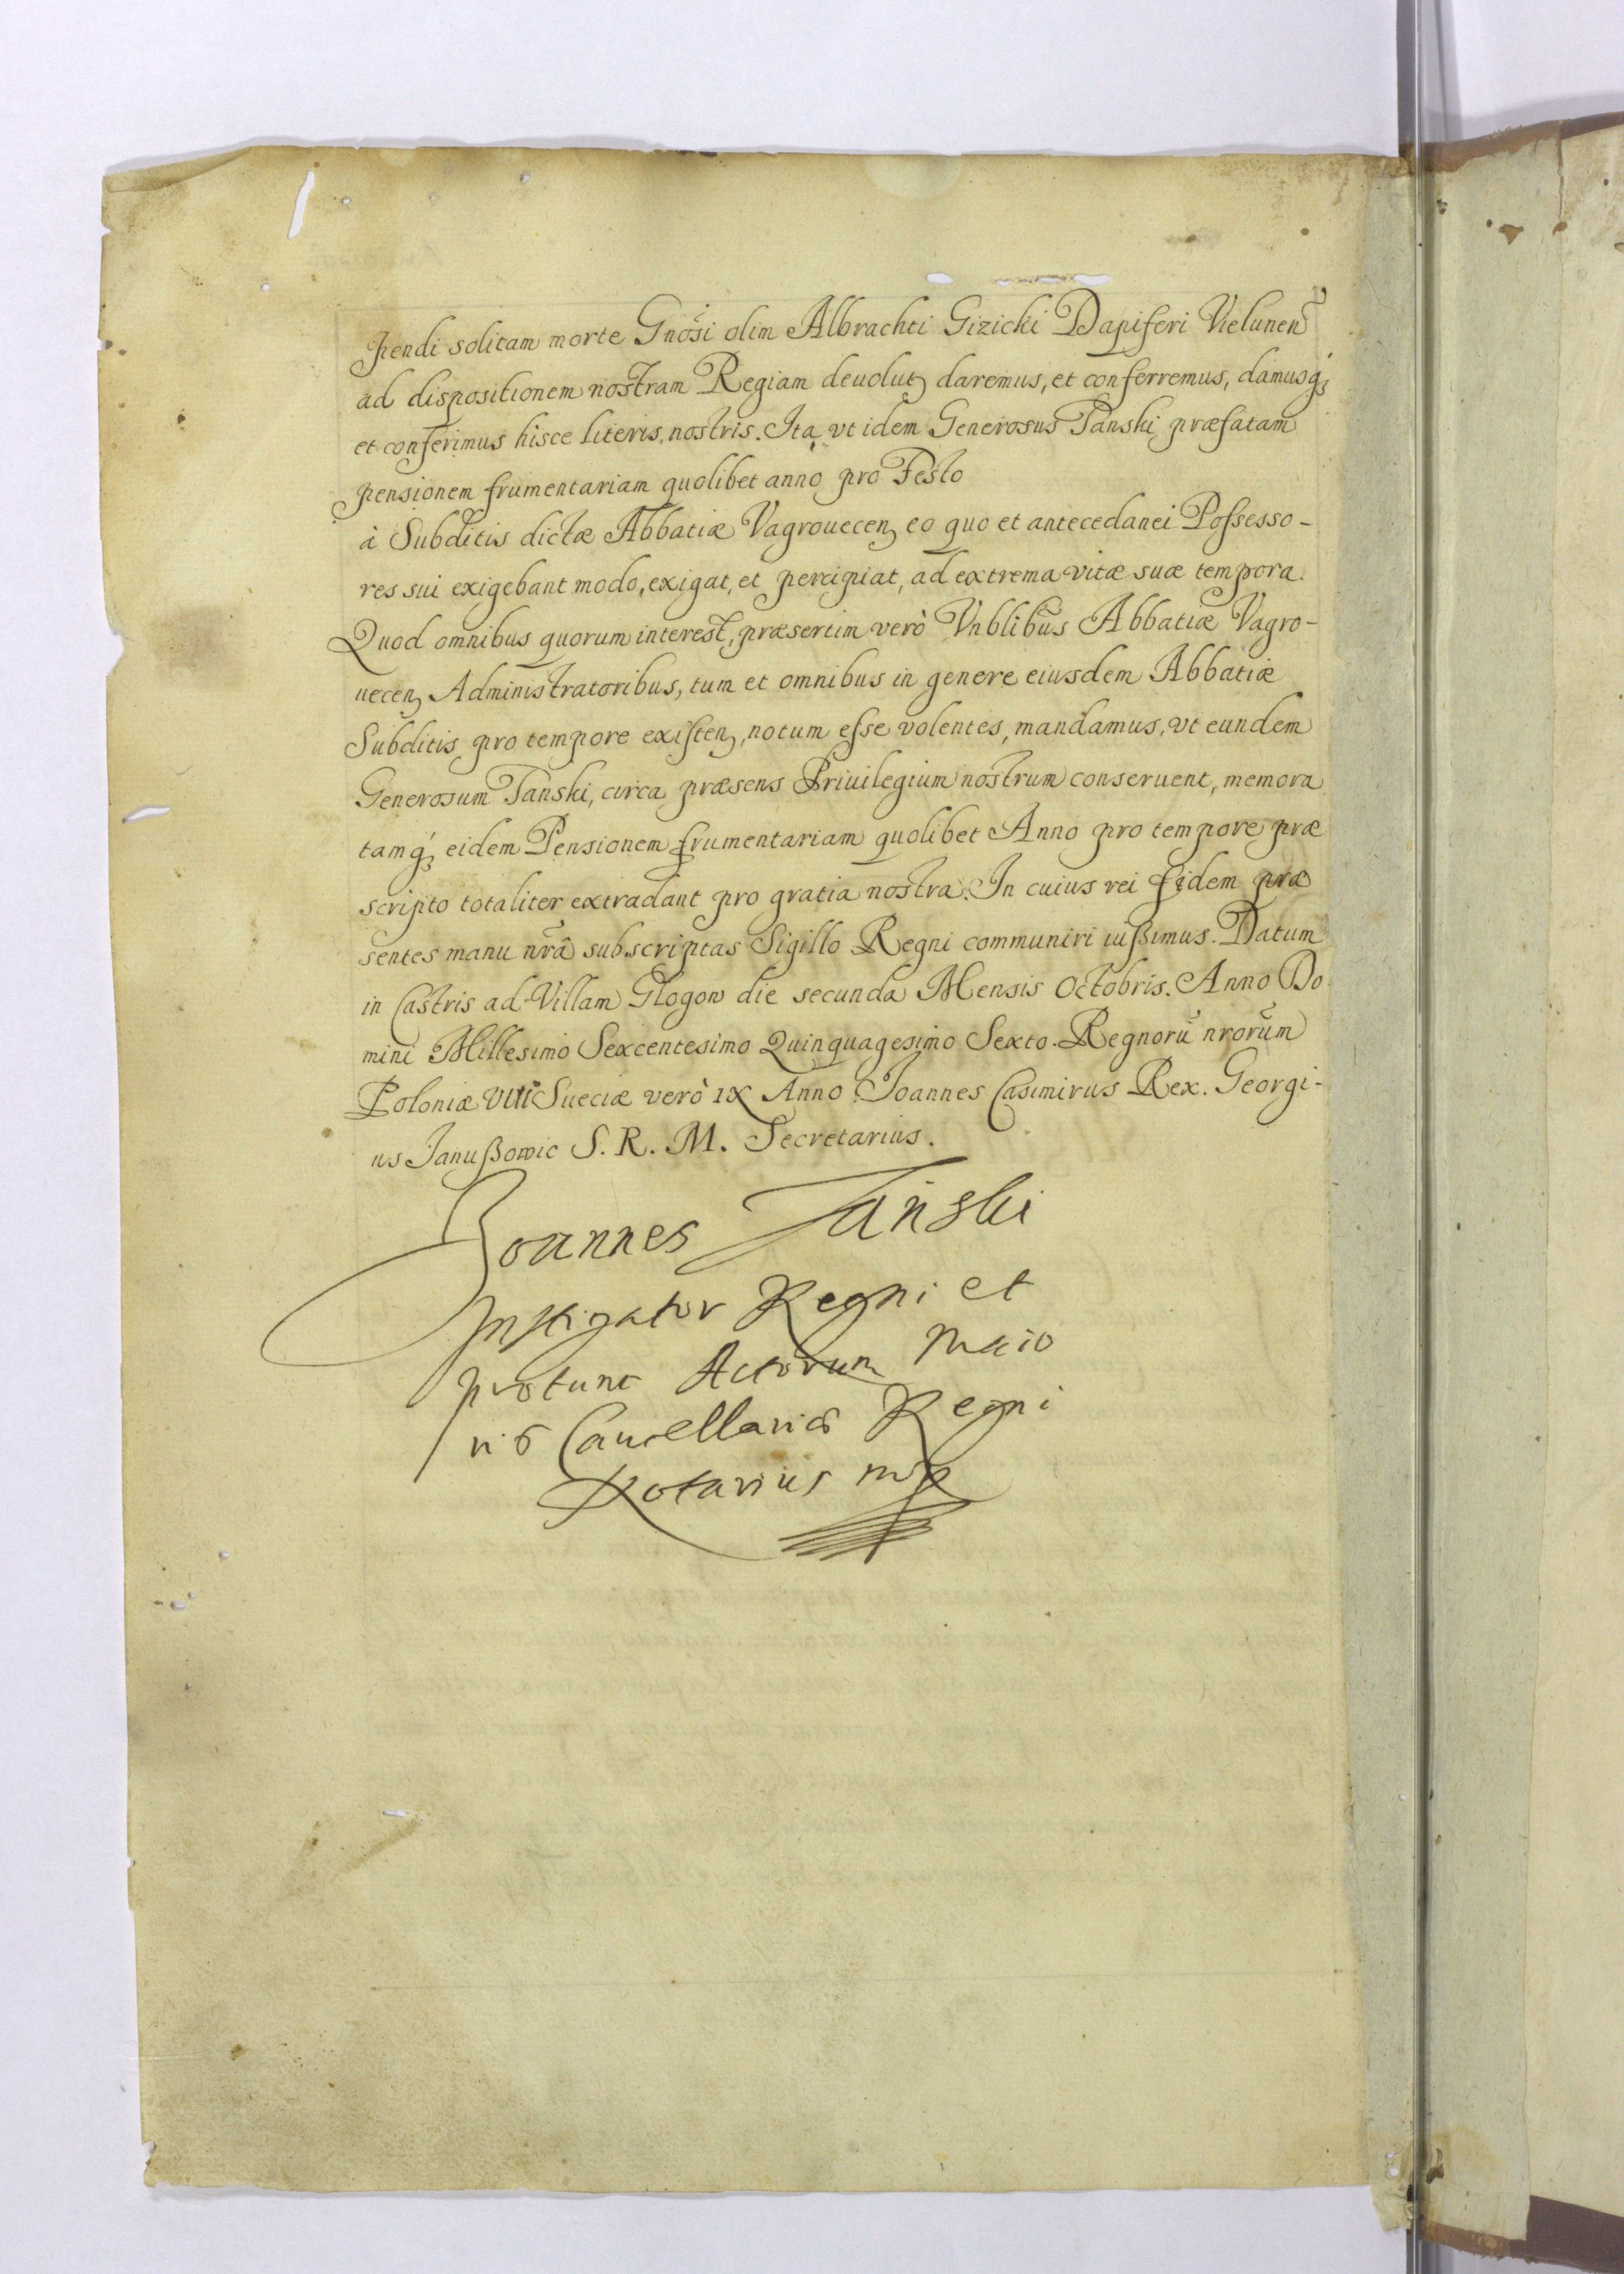 pendi solitam morte Gnosi olim Albrachti Gizicki Dapiferi Vielunen
ad dispositionem nostram Regiam deuolutꝫ daremus, et conferremus, damusqꝫ
et conferimus hisce literis nostris. Ita vt idem Generosus Tanski præfatam
pensionem frumentariam quolibet anno pro Festo
à Subditis dictæ Abbatiæ Vagrouecenꝫ eo quo et antecedanei Possesso-
res sui exigebant modo, exigat, et percipiat, ad extrema vitæ suæ tempora.
Quod omnibus quorum interest, præsertim verò Vnblibus Abbatiæ Vagro-
uecenꝫ Administratoribus, tum et omnibus in genere eiusdem Abbatiæ
Subditis pro tempore existenꝫ, notum esse volentes, mandamus, vt eundem
Generosum Tanski, circa præsens Priuilegium nostrum conseruent, memora
tamqꝫ eidem Pensionem frumentariam quolibet Anno pro tempore præ
scripto totaliter extradant pro gratia nostra. In cuius rei fidem præ
sentes manu nrâ subscriptas Sigillo Regni communiri iußimus. Datum
in Castris ad Villam Glogow die secunda Mensis Octobris. Anno Do
mini Millesimo Sexcentesimo Quinquagesimo Sexto. Regnorū nrorum
Poloniæ VIII Sueciæ verò IX Anno. Joannes Casimirus Rex. Georgi-
us Janußowic S. R. M. Secretarius.
Joannes Tański
Instigator Regni et
protunc Actorum Maio
ris Cancellariæ Regni
Notarius mp